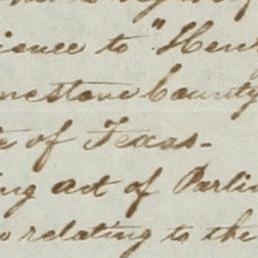 to "Hen
mestone County
of Texas.
ing act of Parli
relating to the